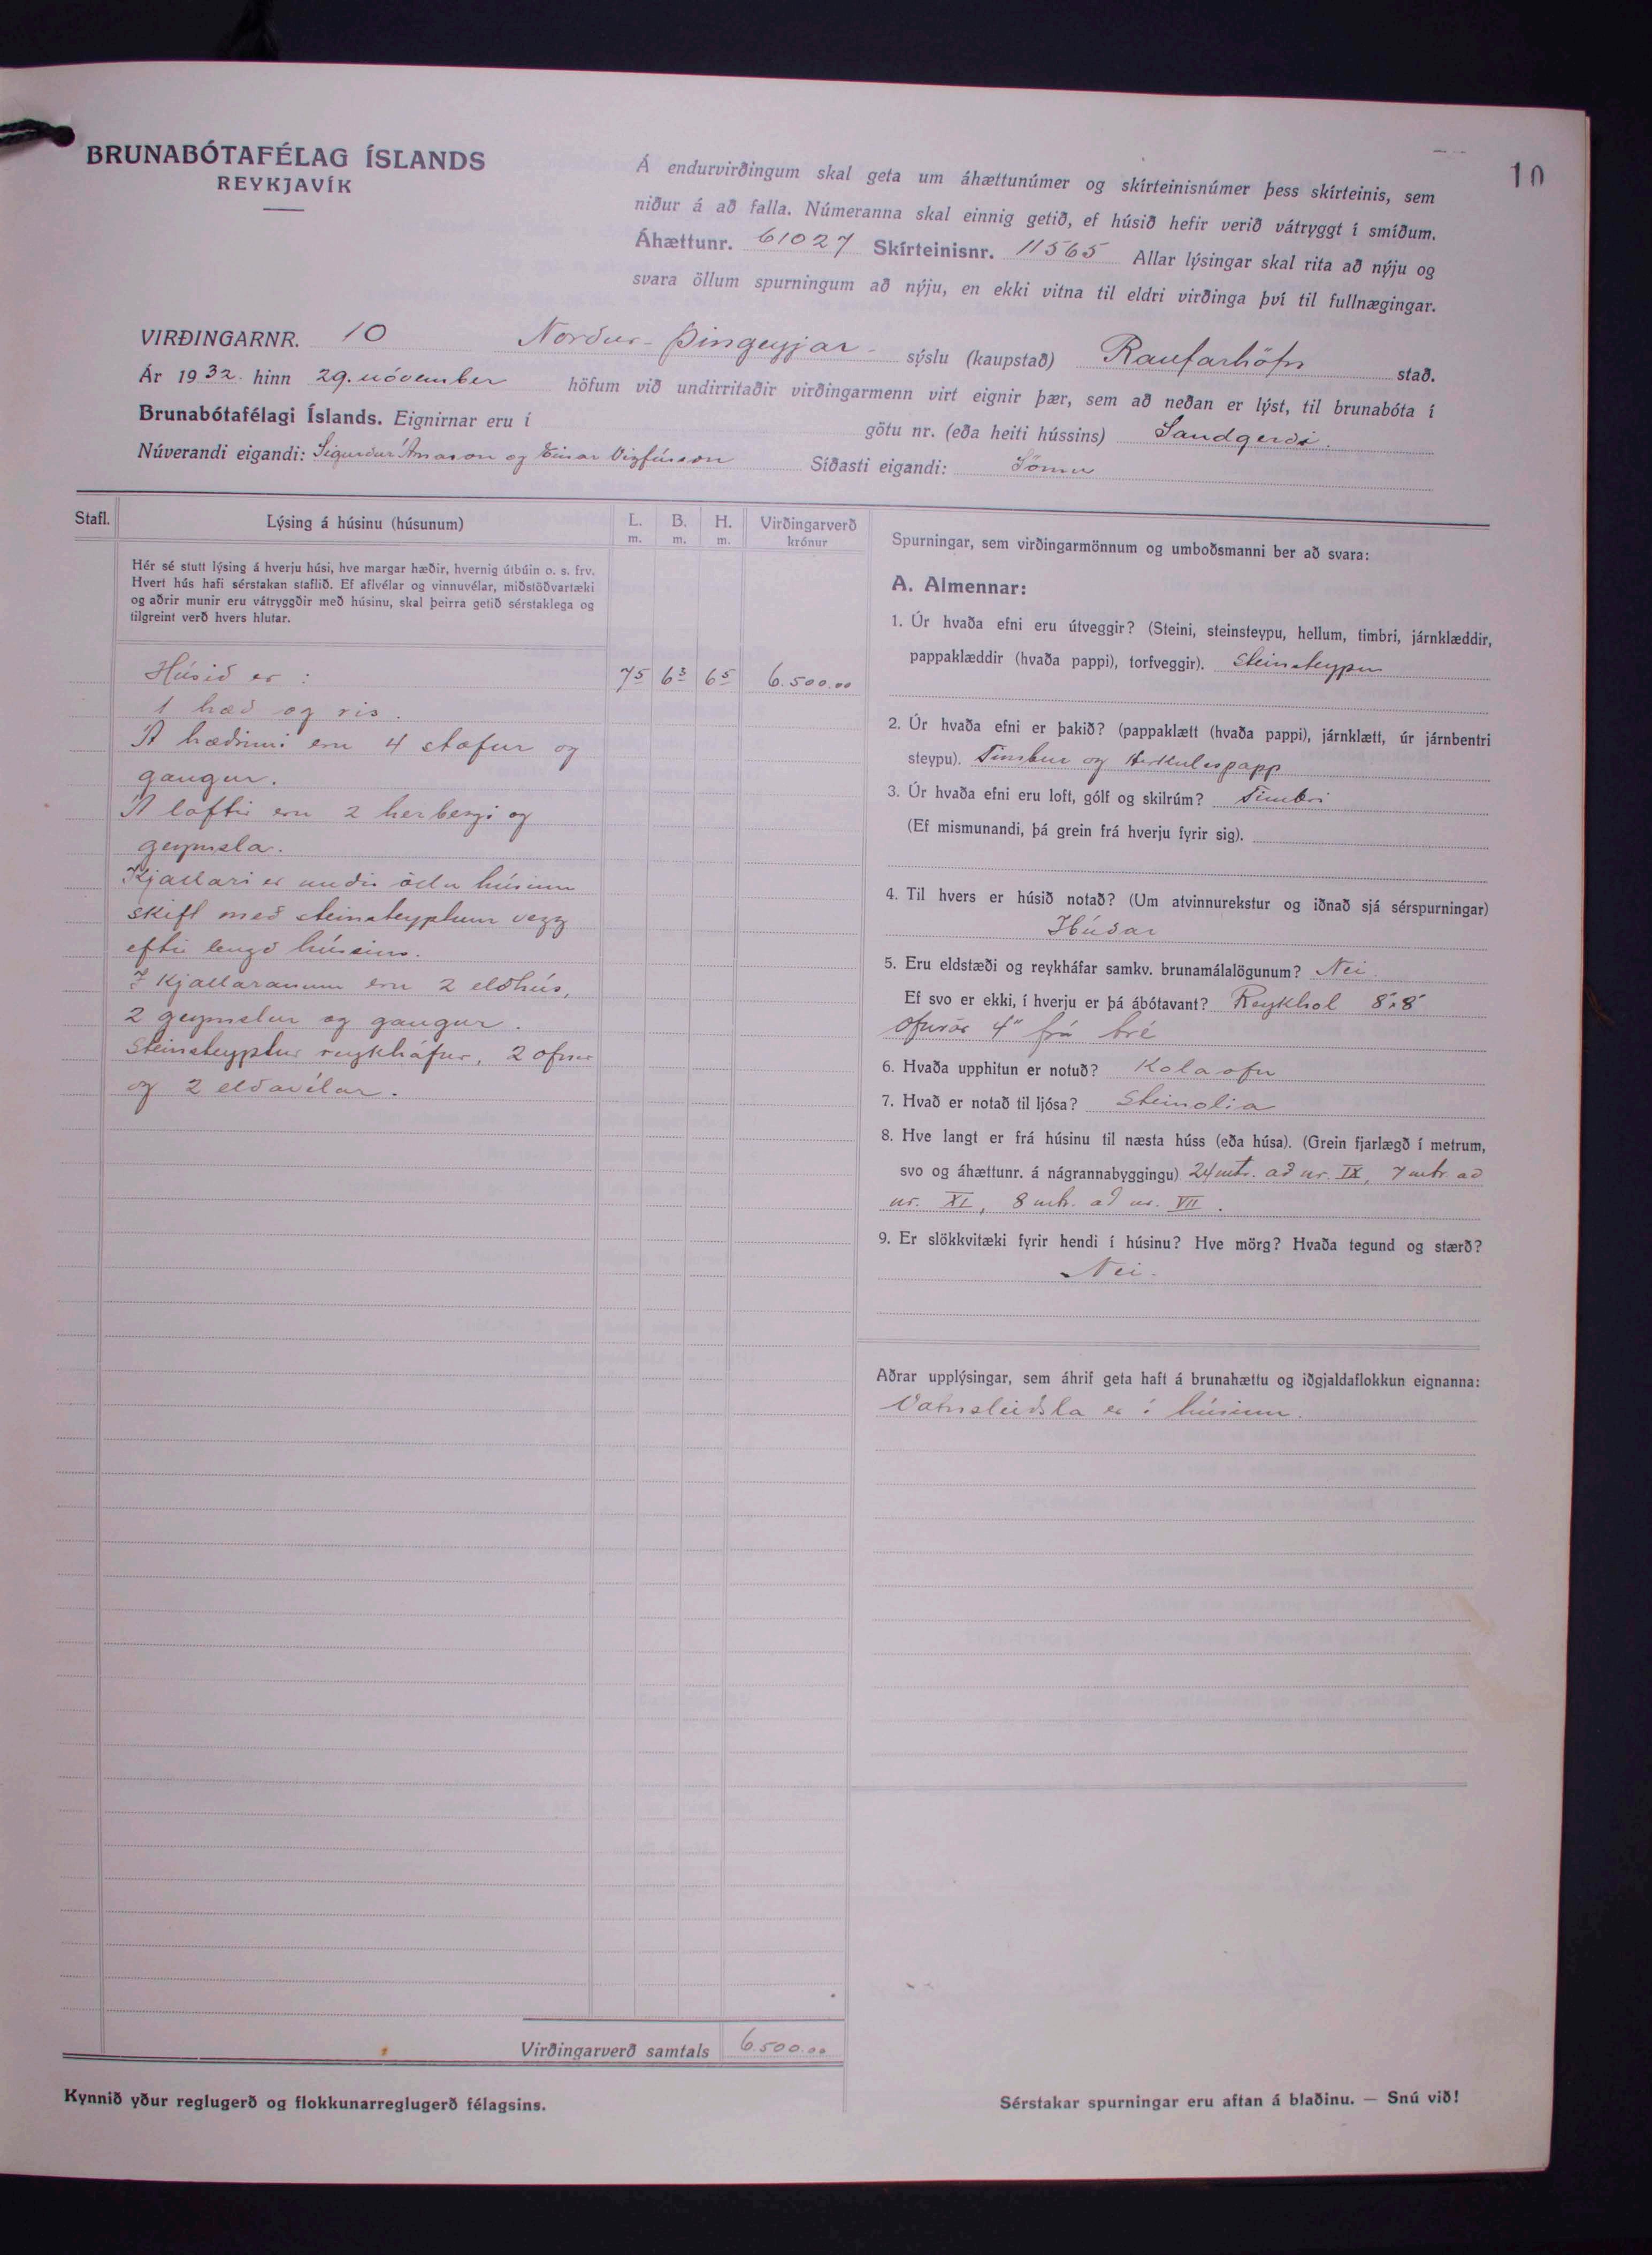 10
BRUNABÓTAFÉLAG ÍSLANDS
REYKJAVÍK
Á endurvirðingum skal geta um áhættunúmer og skírteinisnúmer þess skírteinis, sem
niður á að falla. Númeranna skal einnig getið, ef húsið hefir verið vátryggt í smíðum.
Áhættunr. 61027 Skírteinisnr. 11565 Allar lýsingar skal rita að nýju og
svara öllum spurningum að nýju, en ekki vitna til eldri virðinga því til fullnægingar.
VIRÐINGARNR. 10 Norður-Þingeyjar- sýslu (kaupstað) Raufarhöfn stað.
Ár 1932. hinn 29. nóvember höfum við undirritaðir virðingarmenn virt eignir þær, sem að neðan er lýst, til brunabóta í
Brunabótafélagi Íslands. Eignirnar eru í götu nr. (eða heiti hússins) Sandgerði.
Núverandi eigandi: Sigurður Árnason og Einar Vigfússon Síðasti eigandi: Sömu
Stafl. Lýsing á húsinu (húsunum) L. m. B. m. H. m. Virðingarverð krónur
Hér sé stutt lýsing á hverju húsi, hve margar hæðir, hvernig útbúin o. s. frv.
Hvert hús hafi sérstakan staflið. Ef aflvélar og vinnuvélar, miðstöðvartæki
og aðrir munir eru vátryggðir með húsinu, skal þeirra getið sérstaklega og
tilgreint verð hvers hlutar.
Húsið er : 7 5 6 3 6 5 6.500.00
1 hæð og ris.
Á hæðinni eru 4 stofur og
gangur.
Á lofti eru 2 herbergi og
geymsla.
Kjallari er undir öllu húsinu
skift með steinsteyptum vegg
eftir lengd hússins.
Í kjallaranum eru 2 eldhús,
2 geymslur og gangur.
Steinsteyptur reykháfur, 2 ofnar
og 2 eldavélar.
Virðingarverð samtals 6.500.00
Kynnið yður reglugerð og flokkunarreglugerð félagsins.
Spurningar, sem virðingarmönnum og umboðsmanni ber að svara:
A. Almennar:
1. Úr hvaða efni eru útveggir? (Steini, steinsteypu, hellum, timbri, járnklæddir,
pappaklæddir (hvaða pappi), torfveggir). Steinsteypu
2. Úr hvaða efni er þakið? (pappaklætt (hvaða pappi), járnklætt, úr járnbentri
steypu). Timbur og Herkulespapp
3. Úr hvaða efni eru loft, gólf og skilrúm? Timbri
(Ef mismunandi, þá grein frá hverju fyrir sig).
4. Til hvers er húsið notað? (Um atvinnurekstur og iðnað sjá sérspurningar)
Íbúðar
5. Eru eldstæði og reykháfar samkv. brunamálalögunum? Nei.
Ef svo er ekki, í hverju er þá ábótavant? Reykhol 8"x8"
ofnrör 4" frá tré
6. Hvaða upphitun er notuð? Kolaofn
7. Hvað er notað til ljósa? Steinolia
8. Hve langt er frá húsinu til næsta húss (eða húsa). (Grein fjarlægð í metrum,
svo og áhættunr. á nágrannabyggingu) 24 mtr. að nr. IX, 7 mtr. að
nr. XI, 8 mtr. að nr. VII.
9. Er slökkvitæki fyrir hendi í húsinu? Hve mörg? Hvaða tegund og stærð?
Nei.
Aðrar upplýsingar, sem áhrif geta haft á brunahættu og iðgjaldaflokkun eignanna:
Vatnsleiðsla er í húsinu.
Sérstakar spurningar eru aftan á blaðinu. — Snú við!